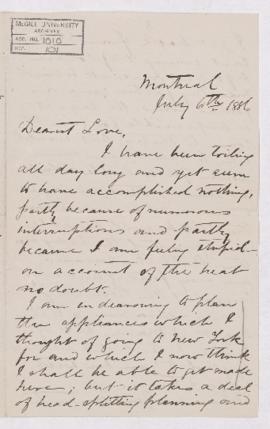 McGILL UNIVERSITY
ARCHIVES
ACC. NO. 1010
REF. 101
Montreal
July 6th 1886
Dearest Love,
I have been toiling
all day long and yet seem
to have accomplished nothing,
partly because of numerous
interruptions and partly
because I am feeling stupid-
on account of the heat
no doubt.
I am endeavoring to plan
the appliances which I
thought of going to New York
for and which I now think
I shall be able to get made
here; but it takes a deal
of head-splitting planning and